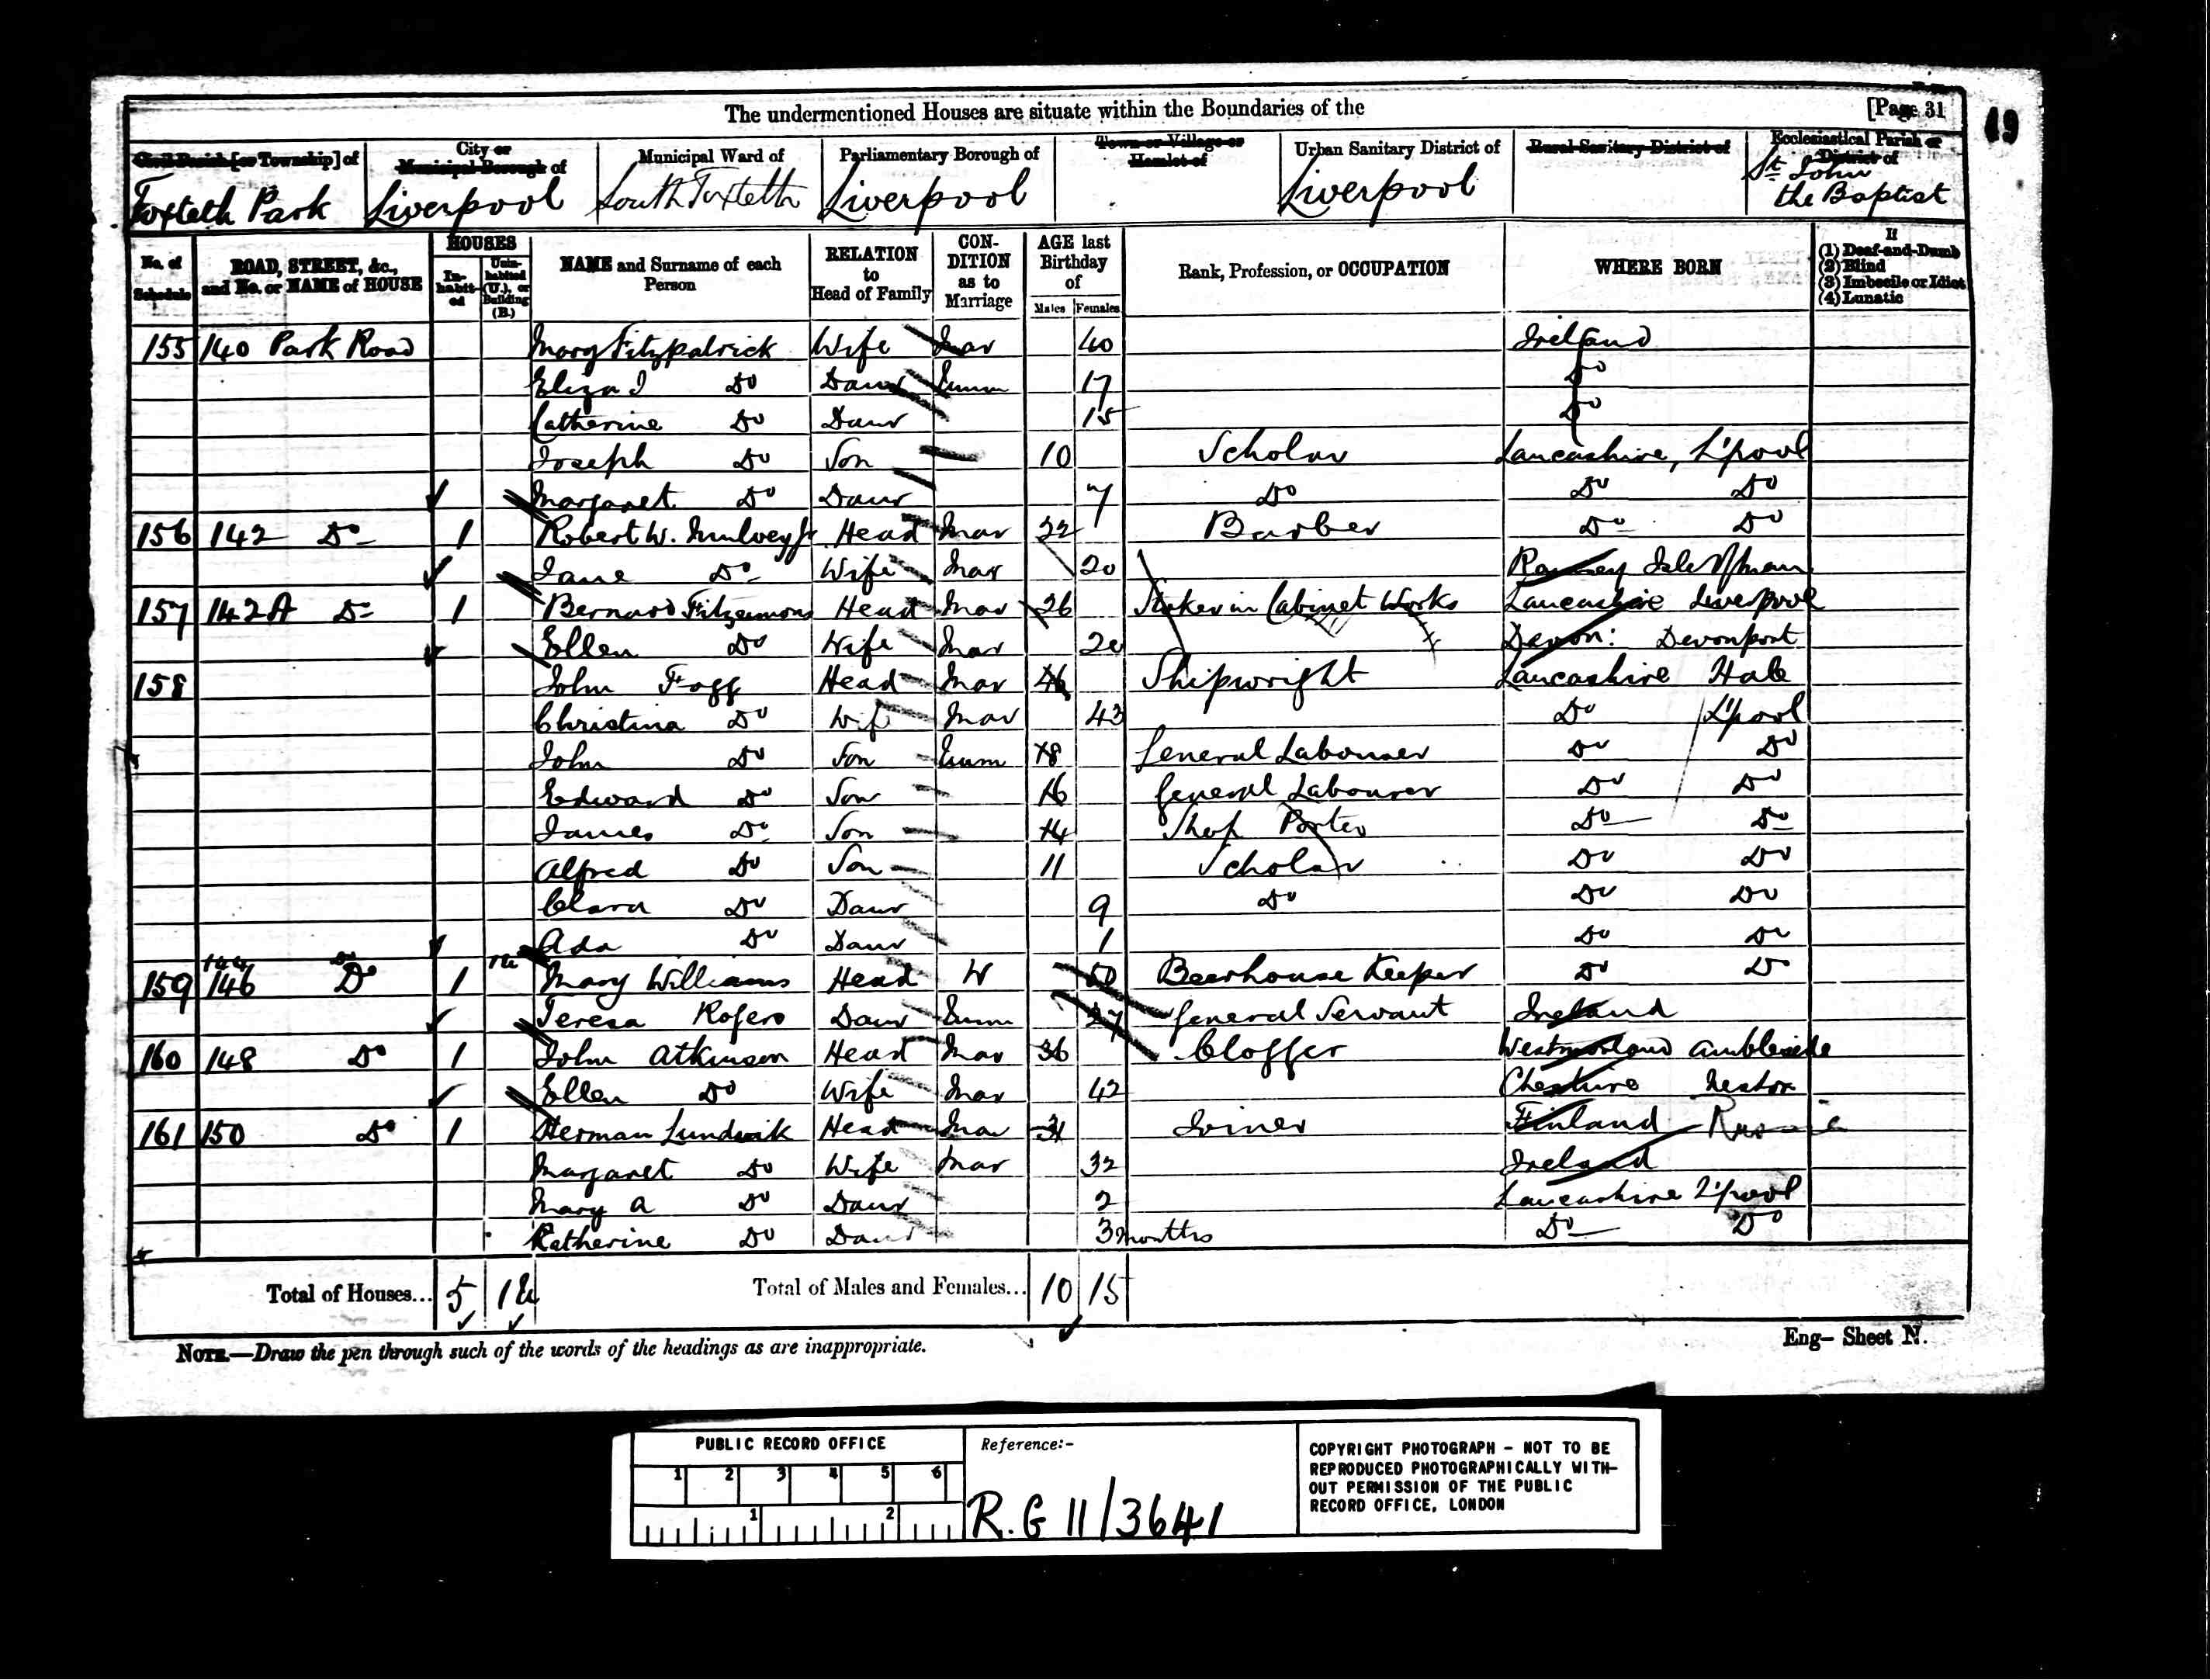 The undermentioned Houses are situate within the Boundaries of the [Page 31
49
Civil Parish [or Township] of City or Municipal Borough of Municipal Ward of Parliamentary Borough of Town or Village or Hamlet of Urban Sanitary District of Rural Sanitary District of Ecclesiastical Parish or District of
Toxteth Park Liverpool South Toxteth Liverpool Liverpool St. John the Baptist
No. of Schedule ROAD, STREET, &c., and No. or NAME of HOUSE HOUSES In-habit-ed Unin-habited (U.), or Building (B.) NAME and Surname of each Person RELATION to Head of Family CON-DITION as to Marriage AGE last Birthday of Males Females Rank, Profession, or OCCUPATION WHERE BORN If (1) Deaf-and-Dumb (2) Blind (3) Imbecile or Idiot (4) Lunatic
155 140 Park Road Mary Fitzpatrick Wife Mar 40 Ireland
Eliza J Do Daur Unm 17 Do
Catherine Do Daur 15 Do
Joseph Do Son 10 Scholar Lancashire, L'pool
Margaret Do Daur 7 Do Do Do
156 142 Do 1 Robert W. Head Mar 22 Barber Do Do
Jane Do Wife Mar 20 Ramsey Isle of Man
157 142A Do 1 Bernard Fitzsimons Head Mar 26 Stoker in Cabinet Works Lancashire Liverpool
Ellen Do Wife Mar Devon: Devonport
158 John Fogg Head Mar 46 Shipwright Lancashire Hale
Christina Do Wife Mar 43 Do L'pool
John Do Son Unm 18 General Labourer Do Do
Edward Do Son 16 General Labourer Do Do
James Do Son 14 Shop Porter Do Do
Alfred Do Son 11 Scholar Do Do
Clara Do Daur 9 Do Do Do
Ada Do Daur 1 Do Do
144 Do 1u
159 146 Do 1 Mary Williams Head W 50 Beerhouse Keeper Do Do
Teresa Rogers Daur Unm 27 General Servant Ireland
160 148 Do 1 John Atkinson Head Mar 36 Clogger Westmorland Ambleside
Ellen Do Wife Mar 42 Cheshire Neston
161 150 Do 1 Herman Lundwik Head Mar 31 Joiner Finland Russia
Margaret Do Wife Mar 32 Ireland
Mary A Do Daur 2 Lancashire L'pool
Katherine Do Daur 3 months Do Do
Total of Houses... 5 1u Total of Males and Females... 10 15
NOTE.—Draw the pen through such of the words of the headings as are inappropriate. Eng– Sheet N.
PUBLIC RECORD OFFICE
1 2 3 4 5 6
1 2
Reference:-
R.G 11/3641
COPYRIGHT PHOTOGRAPH – NOT TO BE
REPRODUCED PHOTOGRAPHICALLY WITH-
OUT PERMISSION OF THE PUBLIC
RECORD OFFICE, LONDON